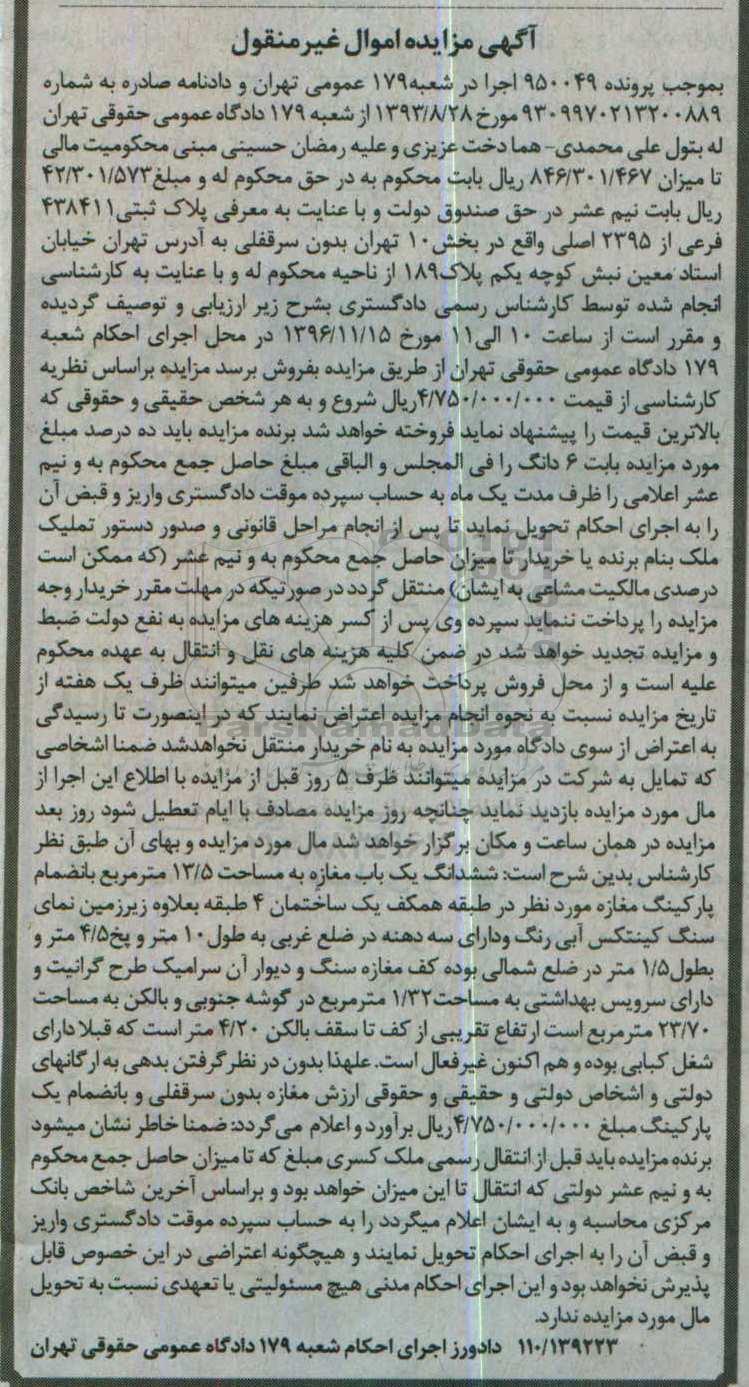 آگهی مزایده اموال غیرمنقول
بموجب پرونده ۹۵۰۰۴۹ اجرا در شعبه۱۷۹ عمومی تهران و دادنامه صادره به شماره
۹۳۰۹۹۷۰۲۱۳۲۰۰۸۸۹ مورخ ۱۳۹۳/۸/۲۸ از شعبه ۱۷۹ دادگاه عمومی حقوقی تهران
له بتول علی محمدی- هما دخت عزیزی و علیه رمضان حسینی مبنی محکومیت مالی
تا میزان ۸۴۶/۳۰۱/۴۶۷ ریال بابت محکوم به در حق محکوم له و مبلغ۴۲/۳۰۱/۵۷۳
ریال بابت نیم عشر در حق صندوق دولت و با عنایت به معرفی پلاک ثبتی۴۳۸۴۱۱
فرعی از ۲۳۹۵ اصلی واقع در بخش۱۰ تهران بدون سرقفلی به آدرس تهران خیابان
استاد معین نبش کوچه یکم پلاک۱۸۹ از ناحیه محکوم له و با عنایت به کارشناسی
انجام شده توسط کارشناس رسمی دادگستری بشرح زیر ارزیابی و توصیف گردیده
و مقرر است از ساعت ۱۰ الی۱۱ مورخ ۱۳۹۶/۱۱/۱۵ در محل اجرای احکام شعبه
۱۷۹ دادگاه عمومی حقوقی تهران از طریق مزایده بفروش برسد مزایده براساس نظریه
کارشناسی از قیمت ۴/۷۵۰/۰۰۰/۰۰۰ریال شروع و به هر شخص حقیقی و حقوقی که
بالاترین قیمت را پیشنهاد نماید فروخته خواهد شد برنده مزایده باید ده درصد مبلغ
مورد مزایده بابت ۶ دانگ را فی المجلس و الباقی مبلغ حاصل جمع محکوم به و نیم
عشر اعلامی را ظرف مدت یک ماه به حساب سپرده موقت دادگستری واریز و قبض آن
را به اجرای احکام تحویل نماید تا پس از انجام مراحل قانونی و صدور دستور تملیک
ملک بنام برنده یا خریدار تا میزان حاصل جمع محکوم به و نیم عشر (که ممکن است
درصدی مالکیت مشاعی به ایشان) منتقل گردد در صورتیکه در مهلت مقرر خریدار وجه
مزایده را پرداخت ننماید سپرده وی پس از کسر هزینه های مزایده به نفع دولت ضبط
و مزایده تجدید خواهد شد در ضمن کلیه هزینه های نقل و انتقال به عهده محکوم
علیه است و از محل فروش پرداخت خواهد شد طرفین میتوانند ظرف یک هفته از
تاریخ مزایده نسبت به نحوه انجام مزایده اعتراض نمایند که در اینصورت تا رسیدگی
به اعتراض از سوی دادگاه مورد مزایده به نام خریدار منتقل نخواهدشد ضمنا اشخاصی
که تمایل به شرکت در مزایده میتوانند ظرف ۵ روز قبل از مزایده با اطلاع این اجرا از
مال مورد مزایده بازدید نماید چنانچه روز مزایده مصادف با ایام تعطیل شود روز بعد
مزایده در همان ساعت و مکان برگزار خواهد شد مال مورد مزایده و بهای آن طبق نظر
کارشناس بدین شرح است: ششدانگ یک باب مغازه به مساحت ۱۳/۵ مترمربع بانضمام
پارکینگ مغازه مورد نظر در طبقه همکف یک ساختمان ۴ طبقه بعلاوه زیرزمین نمای
سنگ کینتکس آبی رنگ ودارای سه دهنه در ضلع غربی به طول ۱۰ متر و پخ۴/۵ متر و
بطول۱/۵ متر در ضلع شمالی بوده کف مغازه سنگ و دیوار آن سرامیک طرح گرانیت و
دارای سرویس بهداشتی به مساحت۱/۳۲ مترمربع در گوشه جنوبی و بالکن به مساحت
۲۳/۷۰ مترمربع است ارتفاع تقریبی از کف تا سقف بالکن ۴/۲۰ متر است که قبلا دارای
شغل کبابی بوده و هم اکنون غیرفعال است. علهذا بدون در نظر گرفتن بدهی به ارگانهای
دولتی و اشخاص دولتی و حقیقی و حقوقی ارزش مغازه بدون سرقفلی و بانضمام یک
پارکینگ مبلغ ۴/۷۵۰/۰۰۰/۰۰۰ریال برآورد و اعلام می گردد: ضمنا خاطر نشان میشود
برنده مزایده باید قبل از انتقال رسمی ملک کسری مبلغ که تا میزان حاصل جمع محکوم
به و نیم عشر دولتی که انتقال تا این میزان خواهد بود و براساس آخرین شاخص بانک
مرکزی محاسبه و به ایشان اعلام میگردد را به حساب سپرده موقت دادگستری واریز
و قبض آن را به اجرای احکام تحویل نمایند و هیچگونه اعتراضی در این خصوص قابل
پذیرش نخواهد بود و این اجرای احکام مدنی هیچ مسئولیتی یا تعهدی نسبت به تحویل
مال مورد مزایده ندارد.
۱۱۰/۱۳۹۲۲۳ دادورز اجرای احکام شعبه ۱۷۹ دادگاه عمومی حقوقی تهران
ParsNamadData